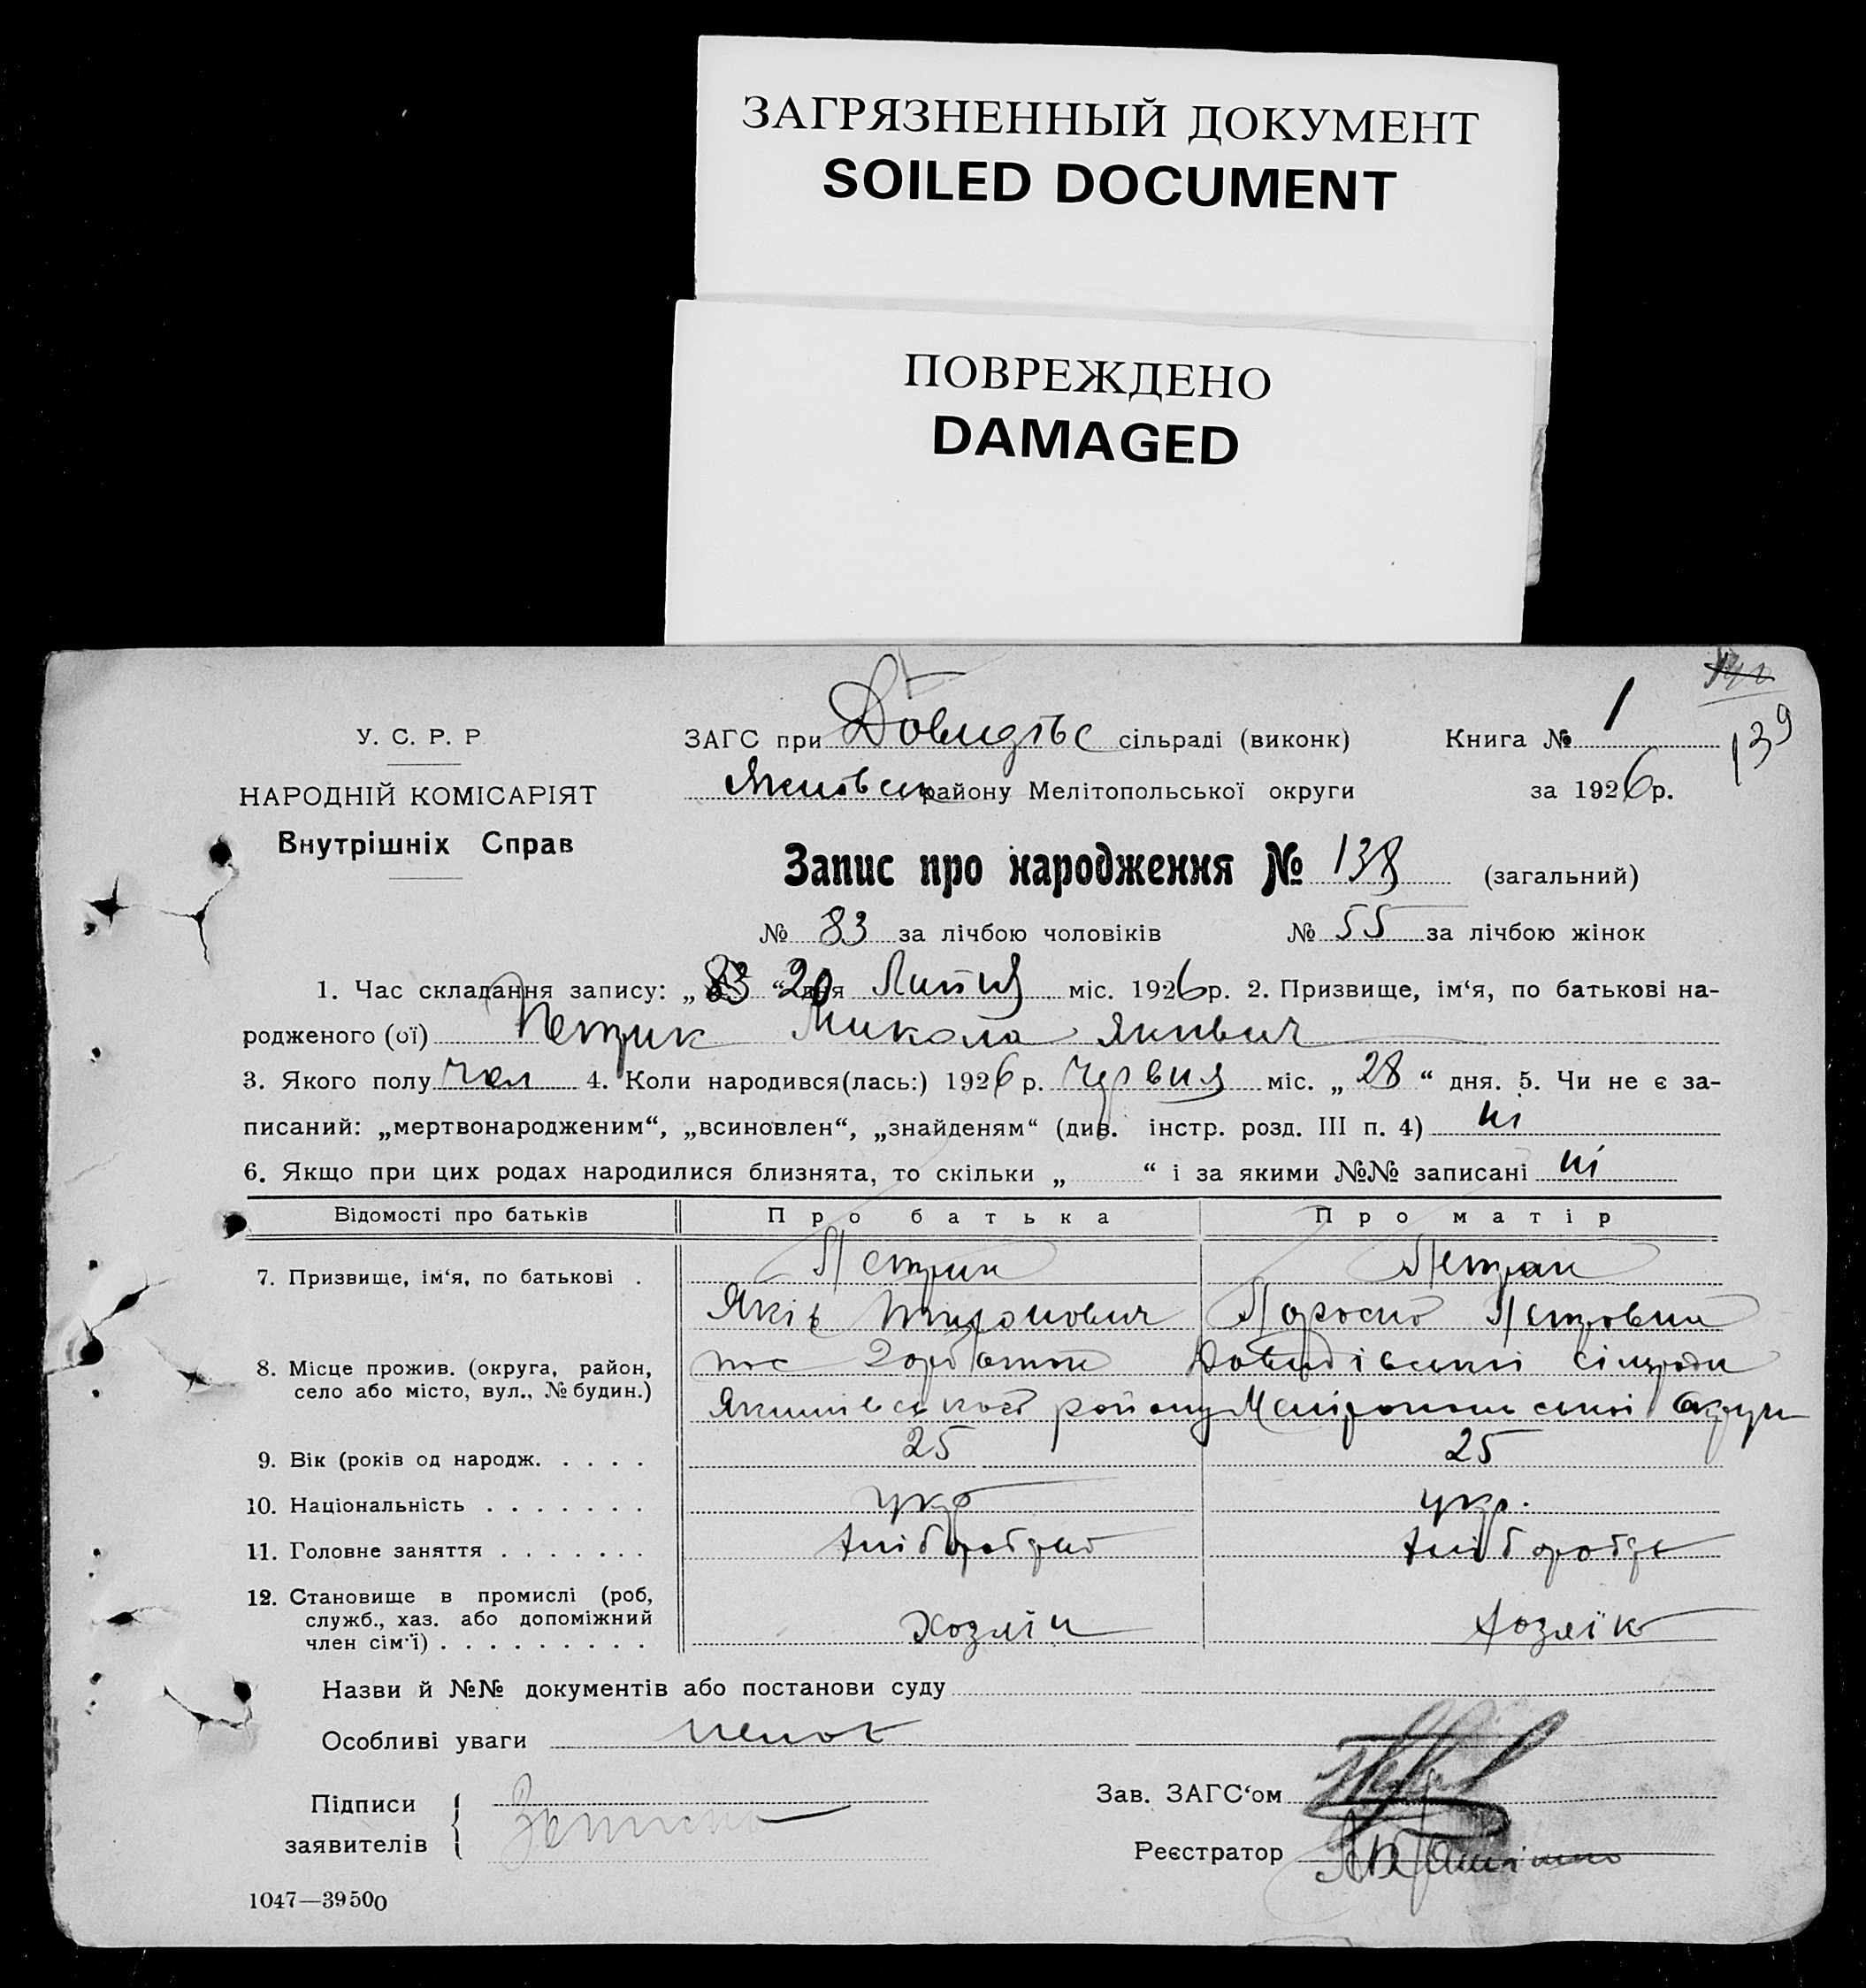 ЗАГРЯЗНЕННЫЙ ДОКУМЕНТ
SOILED DOCUMENT
ПОВРЕЖДЕНО
DAMAGED
139
У. С. Р. Р.
ЗАГС при сільраді (виконк) Книга № 1
НАРОДНІЙ КОМІСАРІЯТ
району Мелітопольської округи за 1926 р.
Внутрішніх Справ
Запис про народження № 138 (загальний)
№ 83 за лічбою чоловіків № 55 за лічбою жінок
1. Час складання запису: „83“ 20 дня Липня міс. 1926 р. 2. Призвище, ім‘я, по батькові на-
родженого (ої) Петрик Микола Якивич
3. Якого полу чол 4. Коли народився(лась:) 1926 р. Червня міс. „ 28 “ дня. 5. Чи не є за-
писаний: „мертвонародженим“, „всиновлен“, „знайденям“ (див. інстр. розд. III п. 4) ні
6. Якщо при цих родах народилися близнята, то скільки „ “ і за якими №№ записані ні
Відомості про батьків Про батька Про матір
7. Призвище, ім‘я, по батькові . Петрик
Яків
8. Місце прожив. (округа, район,
село або місто, вул., № будин.)
району
9. Вік (років од народж. . . . . 25 25
10. Національність . . . . . . . укр укр.
11. Головне заняття . . . . . . . хліборобство
12. Становище в промислі (роб,
служб., хаз. або допоміжний
член сім‘ї) . . . . . . . . . Хозяїн хозяїка
Назви й №№ документів або постанови суду
Особливі уваги немає
Підписи
заявителів
Зав. ЗАГС‘ом
Реєстратор
1047—39500